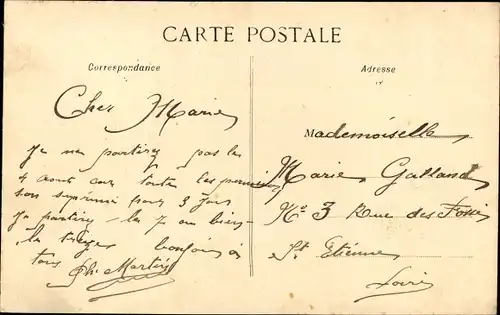 CARTE POSTALE
Correspondance
Adresse
Cher Marie
Je ne partirez pas le
4 aout car toutes les permissi
son suprimé pour 3 jour
Je partirez le 7 ou bien
le bonjour à
tous Ph. Martin
Mademoiselle
Marie Galland
No 3 Rue des Fossés
St Etienne
Loire